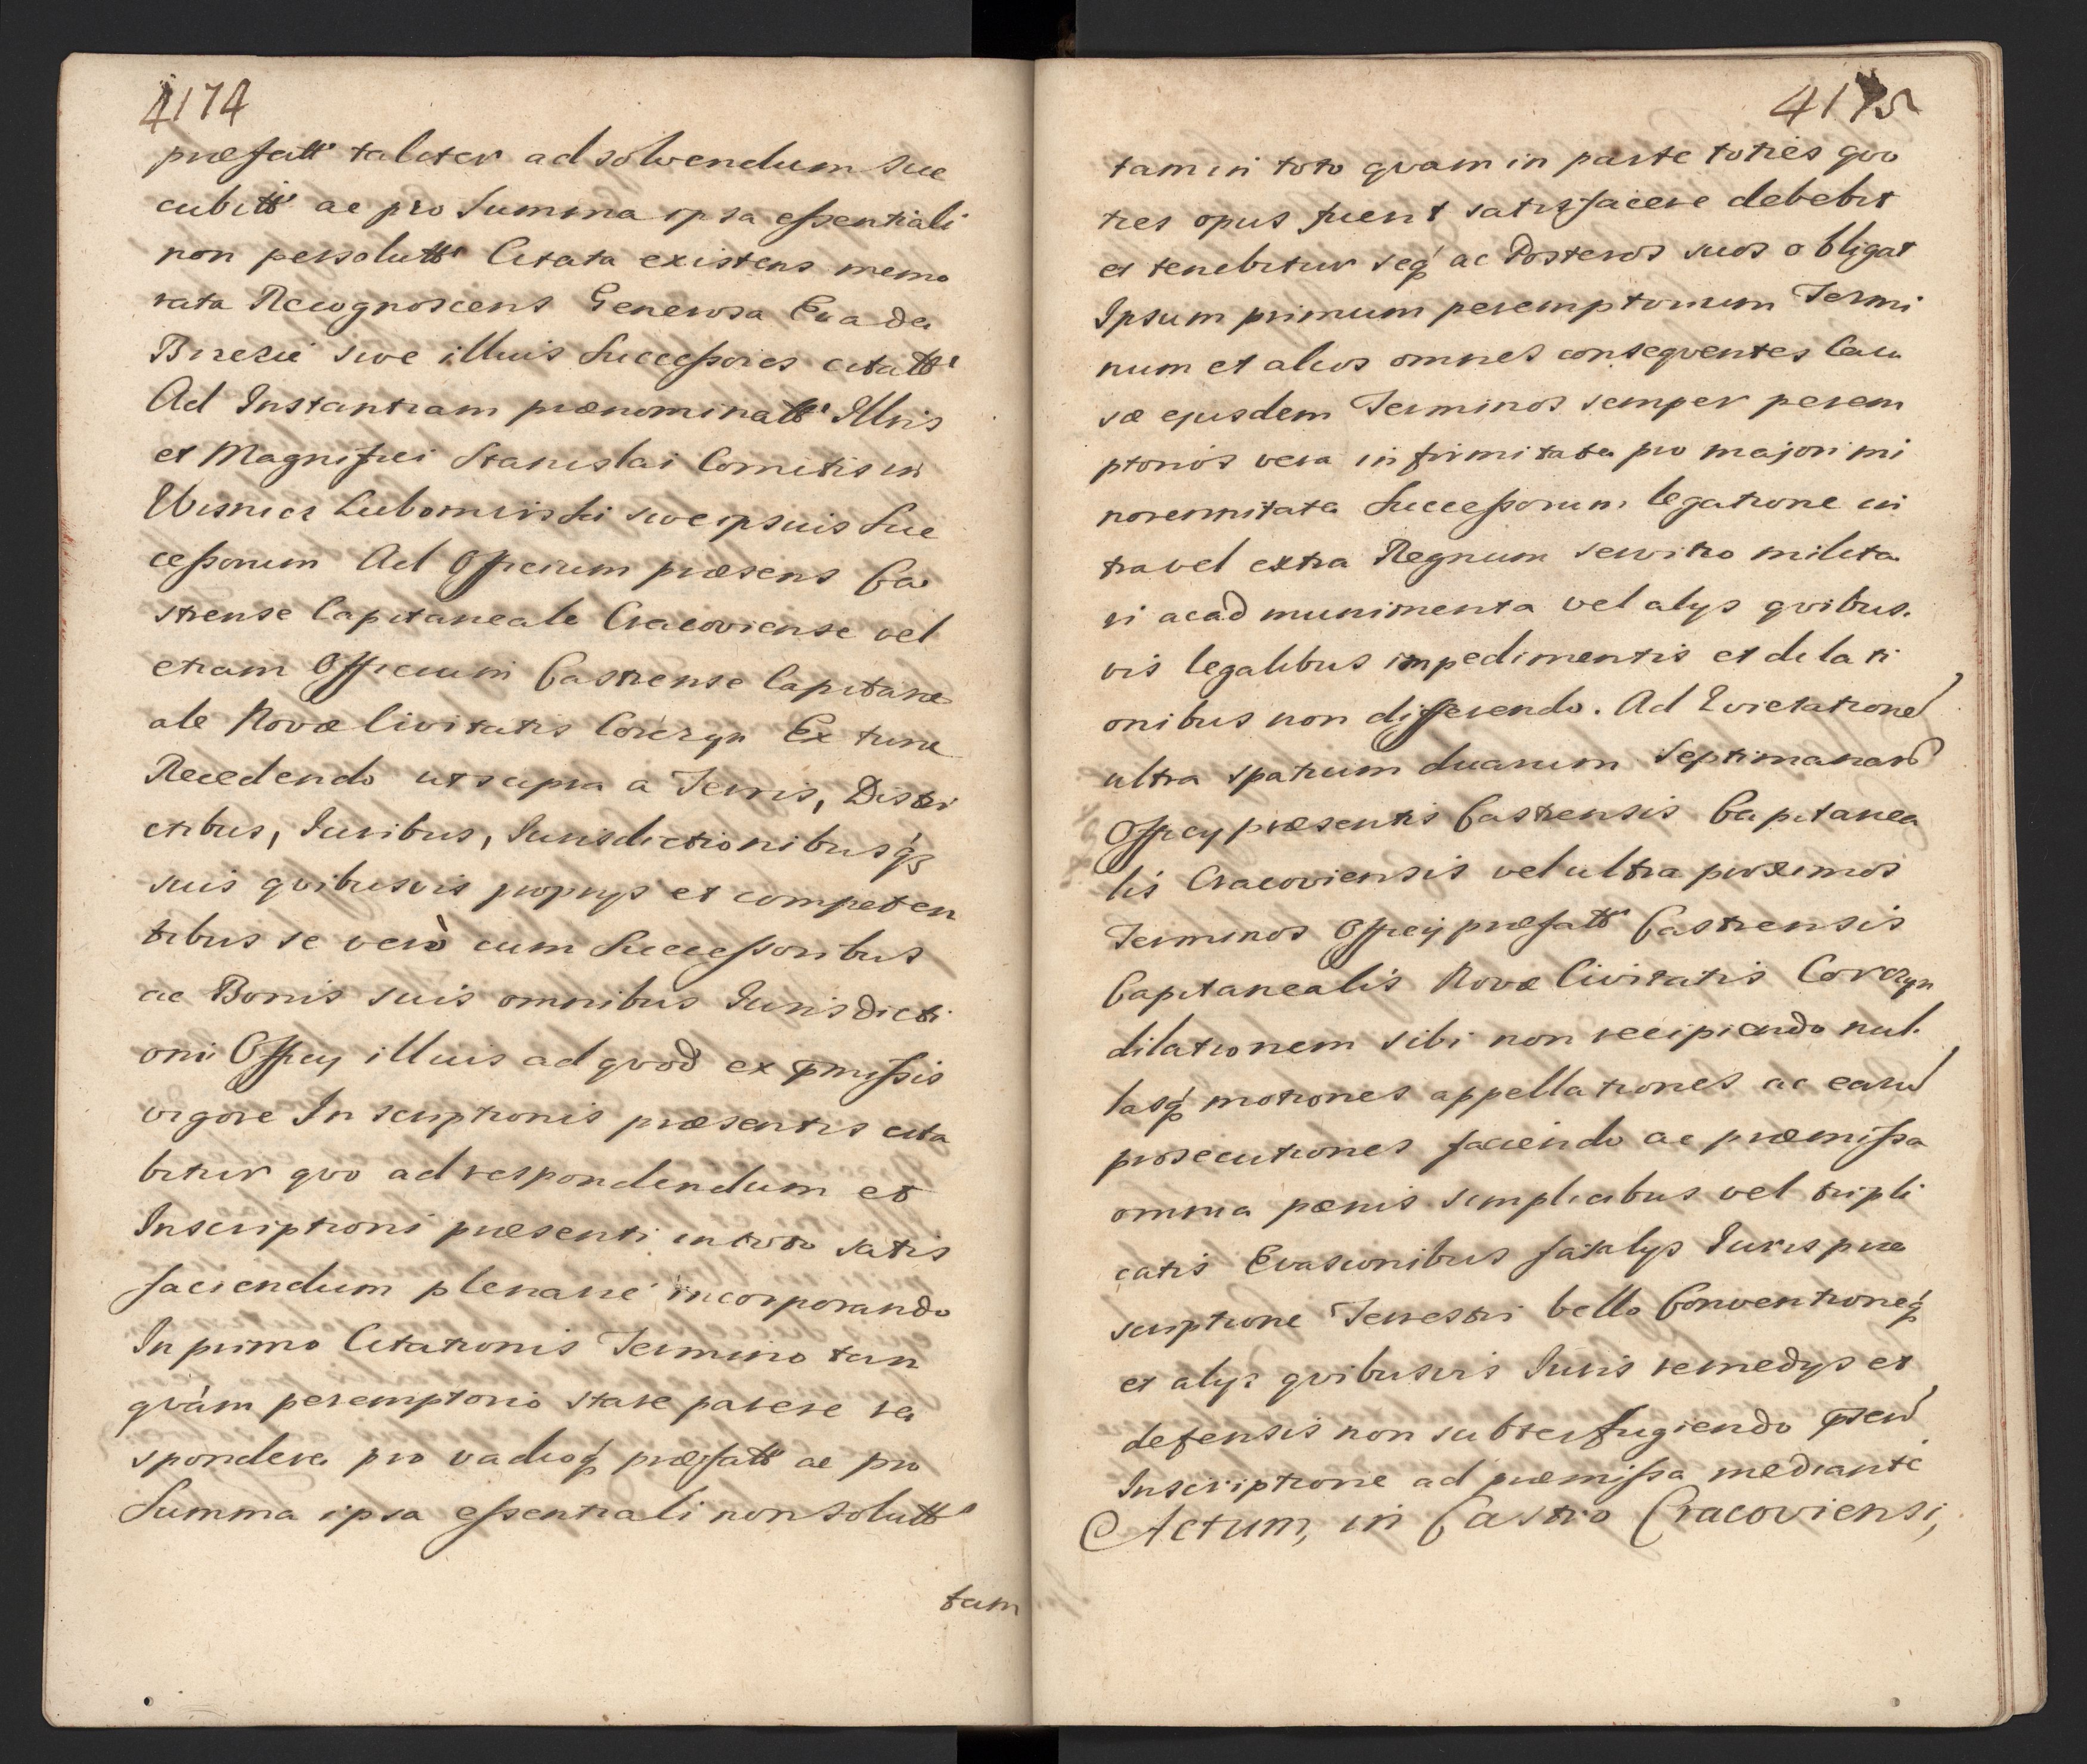 4174
præfatt' taliter ad solvendum suc
cubitt' ac pro Summa ipsa essentiali
non persolutt' Citata existens memo
rata Recognoscens Generosa Eva de
Brzezie sive illius Successores citatt'
Ad Instantiam prænominatt' Illris
et Magnifici Stanislai Comitis in
Wisnicz Lubomirski sive ipsuis Suc
cessorum Ad Officium præsens Ca
strense Capitaneale Cracoviense vel
etiam Officium Castrense Capitane
ale Novæ Civitatis Corczyn Ex tunc
Recedendo ut supra a Terris, Distri
ctibus, Iuribus, Iurisdictionibusq3
suis qvibusvis proprys et competen
tibus se verò cum Successoribus
ac Bonis suis omnibus Iurisdicti
oni Officy illius ad qvod ex pmissis
vigore Inscriptionis præsentis cita
bitur qvo ad respondendum et
Inscriptioni præsenti in toto satis
faciendum plenarie incorporando
In primo Citationis Termino tan
qvàm peremptorio stare parere re
spondere pro vadioq præfatt' ac pro
Summa ipsa essentiali non solutt'
tam
4175
tam in toto qvam in parte toties qvo
ties opus fuerit satisfacere debebit
et tenebitur seq ac Posteros suos obligat
Ipsum primum peremptorium Termi
num et alios omnes conseqventes Cau
sæ ejusdem Terminos semper perem
ptorios vera infirmitate pro majori mi
norennitate Successorum legatione in
tra vel extra Regnum servitio milita
ri ac ad munimenta vel alys qvibus.
vis legalibus impedimentis et dilati
onibus non differendo. Ad Evictatione
ultra spatium duarum Septimanar
Officy præsentis Castrensis Capitanea
lis Cracoviensis vel ultra proximos
Terminos Officij præfatt' Castrensis
Capitanealis Novæ Civitatis Corczyn
dilationem sibi non recipiendo nul.
lasq motiones appellationes ac earu
prosecutiones faciendo ac præmissa
omnia pænis simplicibus vel tripli
catis Evasionibus fatalys Iuris præ
scriptione Terrestri bello Conventioneq
et alys qvibusvis Iuris remedys et
defensis non subterfugiendo psen
Inscriptione ad præmissa mediante
Actum, in Castro Cracoviensi,